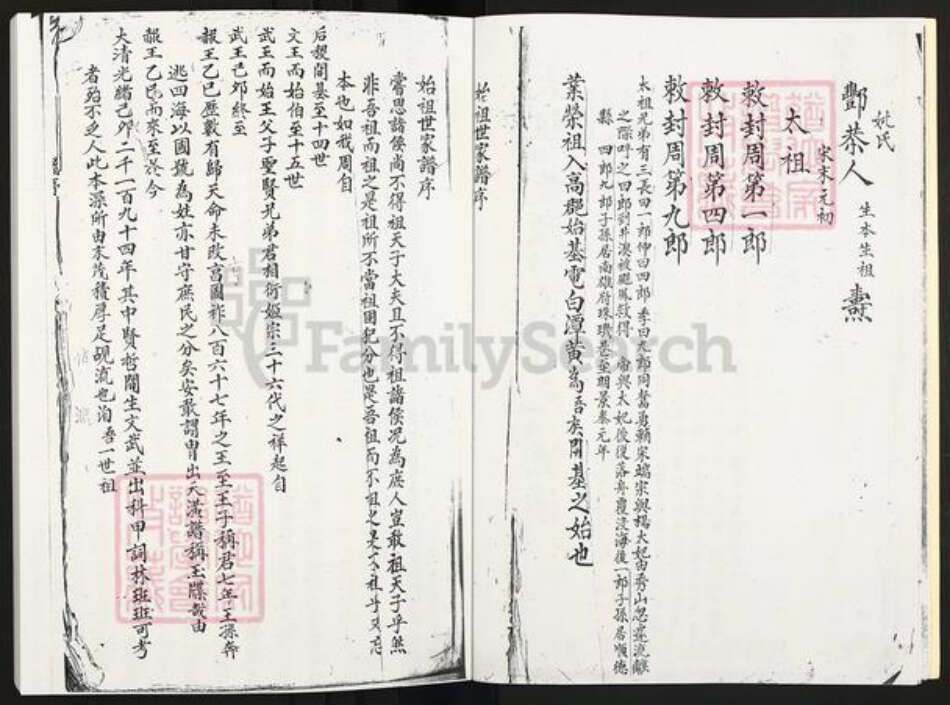 姚氏
酆恭人
生本生祖
燾
宋末元初
太祖
敕封周第一郎
敕封周第四郎
敕封周第九郎
太祖兄弟有三長曰一郎仲曰四郎季曰九郎同奮勇賴宋端宗與楊太妃由秀山忽遭流離
之際呼之四郎到井澳被颶風救得帝與太妃後復落舟覆沒海後一郎子孫居順德
縣四郎九郎子孫居南雄府珠璣巷至明景泰元年
業榮祖入高郡始基電白潭黃為吾矣開基之始也
始祖世家譜序
始祖世家譜序
嘗思諸侯尚不得祖天子大夫且不得祖諸侯况為庶人豈敢祖天子乎然
非吾祖而祖之是祖所不當祖固犯分也是吾祖而不祖之是不祖
本也如我周自
后稷開基至十四世
文王而始伯至十五世
武王而始王父子聖賢兄弟君相衍姬宗三十六代之祥起自
武王己卯終至
赧王乙巳歷數有歸天命未改言國祚八百六十七年之王至王子稱君七年王孫奔
逃四海以國號為姓亦甘守庶民之分矣安敢謂曾出天潢譜稱玉牒哉由
赧王乙巳而來至於今
大清光緒己卯二千一百九十四年其中賢哲間生文武並出科甲詞林班班可考
者殆不乏人此本源所由末茂積厚足覘流也洵吾一世祖
FamilySearch